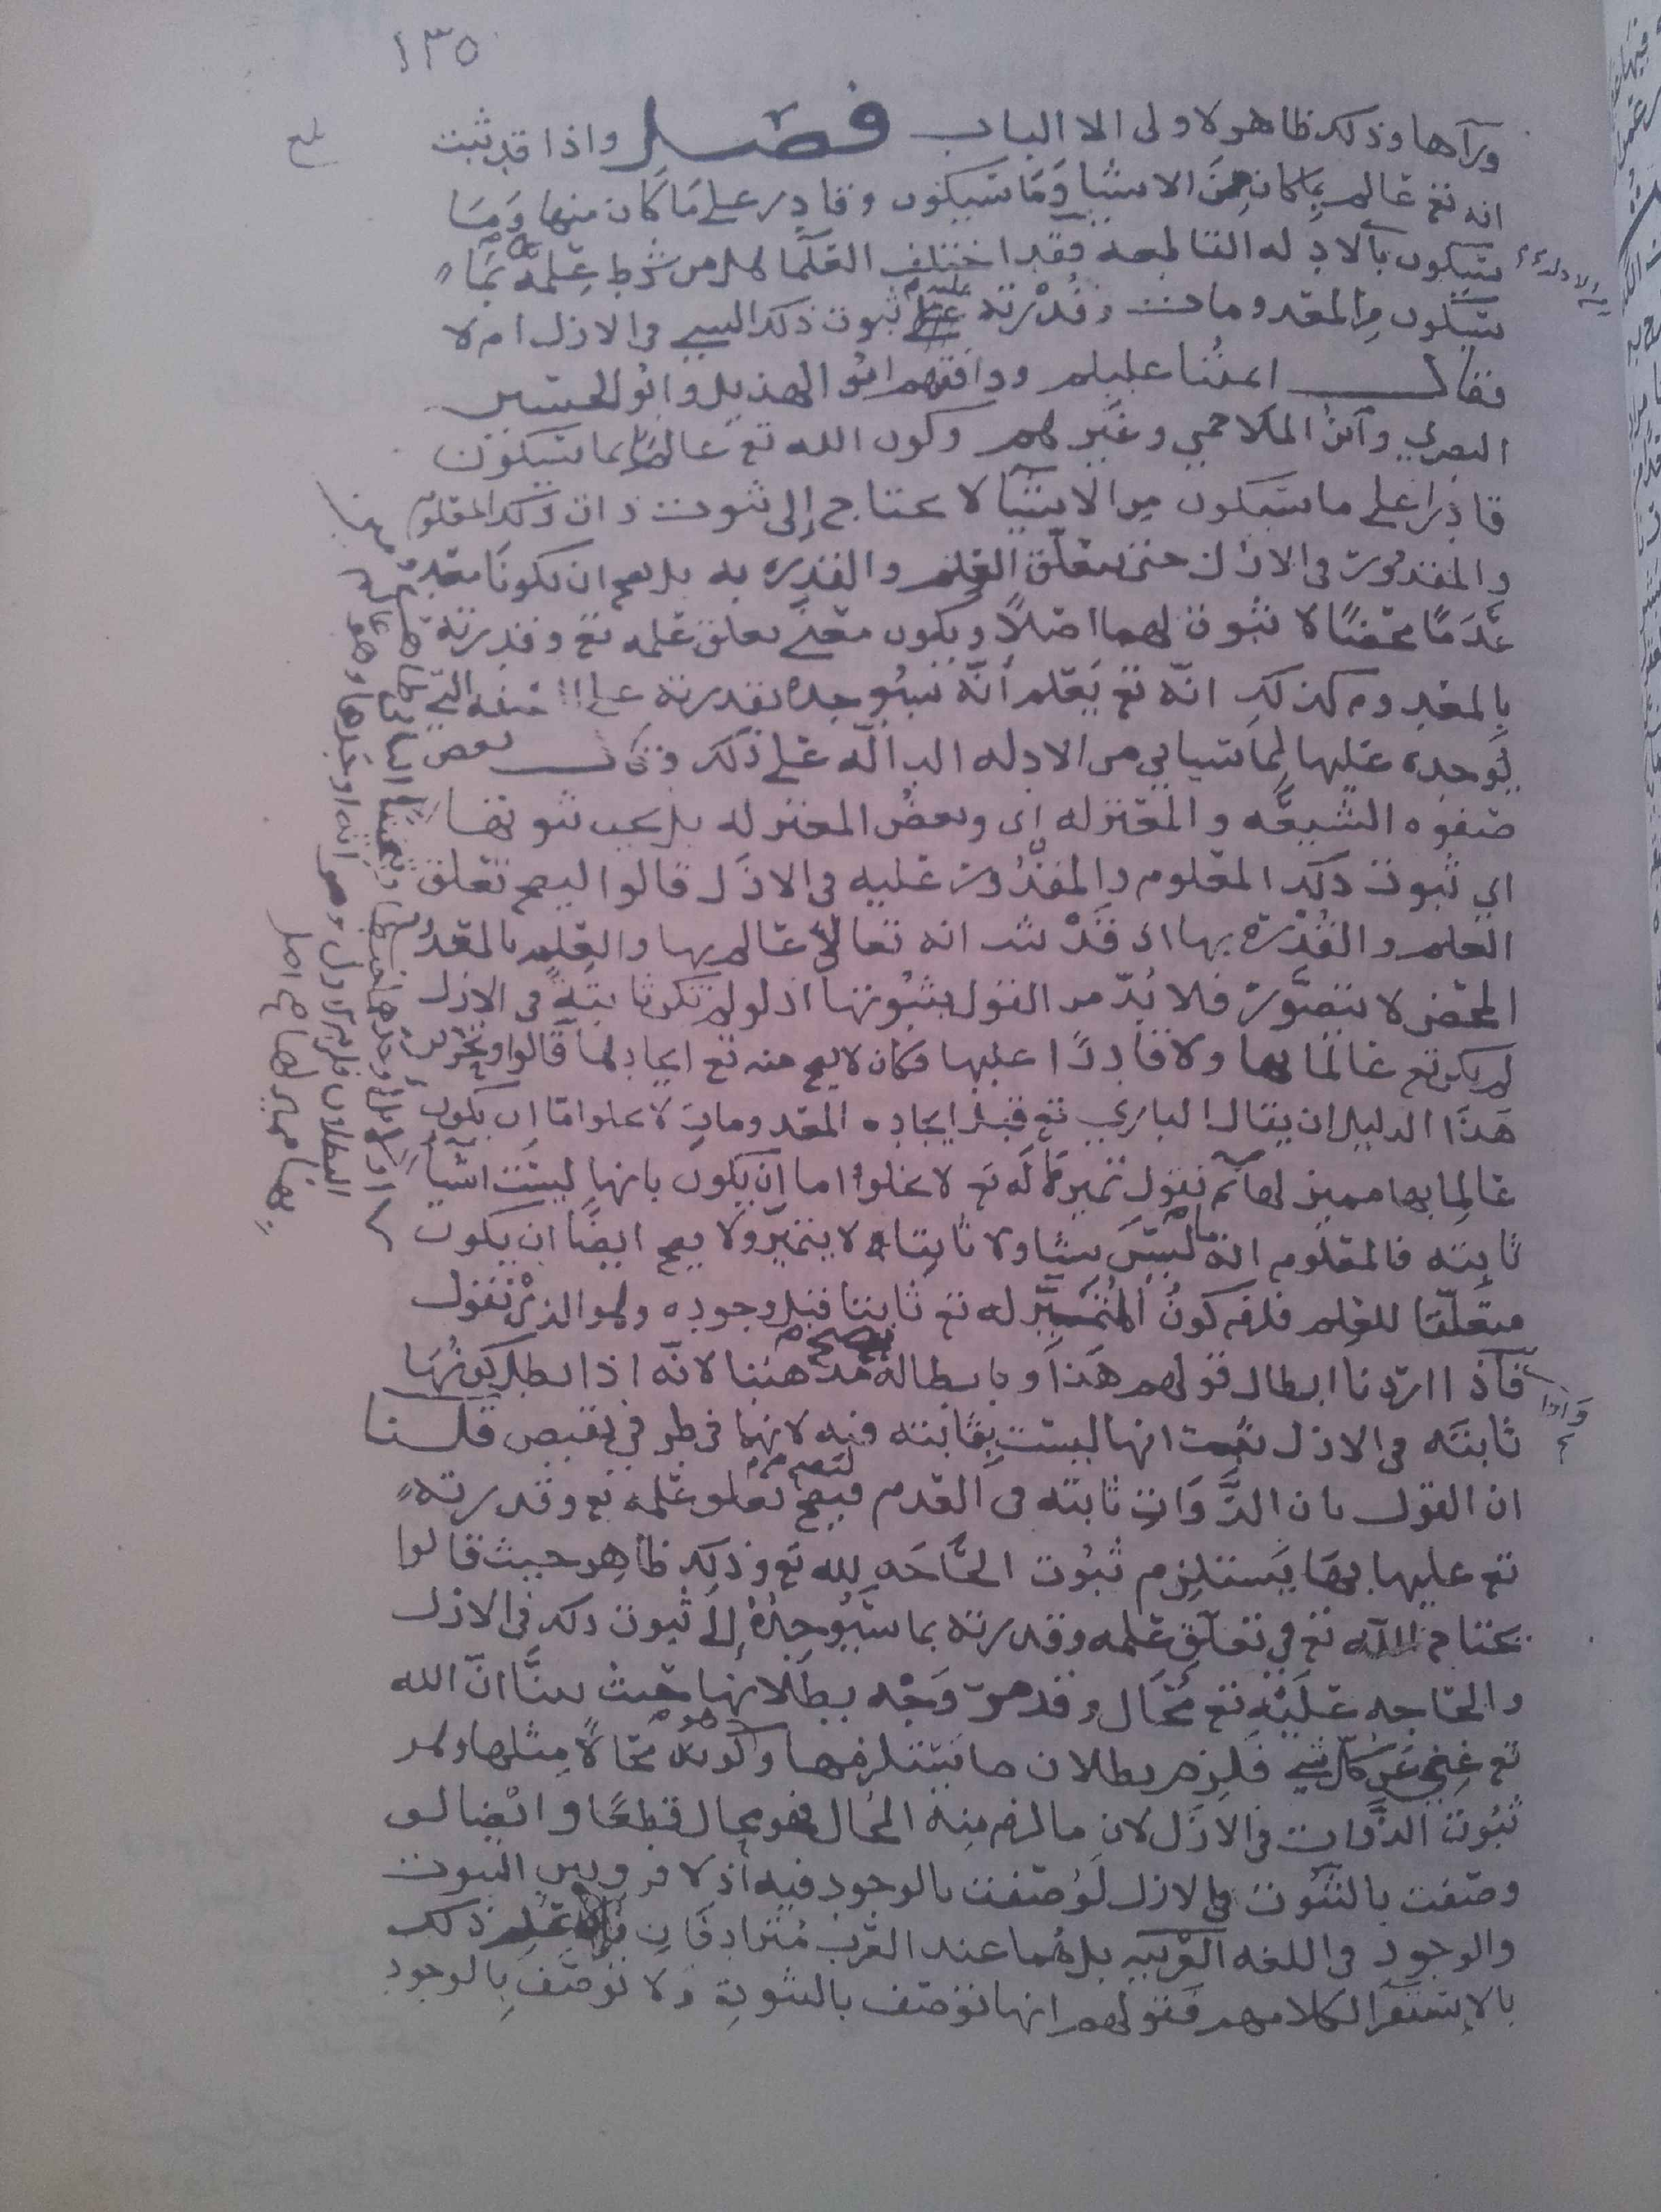 ١٣٥
ورآها وذلك ظاهر لاولى الالباب فصل واذا قد ثبت
انه تع عالم بما كان من الاشيا وما سيكون وقادر على ما كان منها وما
سيكون بالادله القاطعه فقد اختلف العلما هل من شرط علمه بما
سيكون من المعدومات وقدرته عليه ثبوت ذلك الشي في الازل ام لا
فقال ائمتنا عليلم ووافقهم ابو الهذيل وابو الحسين
البصري وابن الملاحمي وغيرهم وكون الله تع عالما بما سيكون
قادرا على ما سيكون من الاشيا لا يحتاج إلى ثبوت ذات ذلك المعلوم
والمقدور في الازل حتى يتعلق العلم والقدره به بل يصح ان يكونا معدومين
عدما محضا لا ثبوت لهما اصلا ويكون معنى تعلق علمه تع وقدرته
بالمعدوم كذلك انه تع يعلم أنه سيوجده بقدرته على الصفه التي
يوجده عليها لما سياتي من الادله الداله على ذلك وقال بعض
صفوه الشيعه والمعتزله اي وبعض المعتزله بل يجب ثبوتها
اي ثبوت ذلك المعلوم والمقدور عليه في الازل قالوا ليصح تعلق
العلم والقدرة بها اذ قد ثبت انه تعالى عالم بها والعلم بالمعدوم
المحض لا يتصور فلا بد من القول بثبوتها اذ لو لم تكن ثابتة في الازل
لم يكن تع عالما بها ولا قادرا عليها فكان لا يصح منه تع ايجادها قالوا وتحرير
هذا الدليل ان يقال الباري تع قبل ايجاده المعدومات لا يخلوا اما ان يكون
عالما بها مميز لها ثم نقول تميزها له تع لا يخلوا اما ان يكون بانها ليست اشيا
ثابته فالمعلوم ان ما ليس بشيا ولا ثابتا لا يتميز ولا يصح ايضا ان يكون
متعلقا للعلم فلزم كون المتميز له تع ثابتا قبل وجوده وهو الذي نقول
فاذا اردنا ابطال قولهم هذا وبابطاله يصح مذهبنا لانه اذا بطل كونها
ثابته في الازل ثبت انها ليست بثابته فيه لانهما في طرفي نقيض قلنا
ان القول بان الذوات ثابته في القدم ليصح تعلق علمه تع وقدرته
تع عليها بها يستلزم ثبوت الحاجه لله تع وذلك ظاهر حيث قالوا
يحتاج الله تع في تعلق علمه وقدرته بما سيوجده إلى ثبوت ذلك في الازل
والحاجه عليه تع محال وقد مر وجه بطلانها حيث بينا ان الله
تع غني عن كل شي فلزم بطلان ما يستلزمها وكونه محالا مثلها وهو
ثبوت الذوات في الازل لان ما لزم منه المحال فهو محال قطعا وايضا لو
وصفت بالثبوت في الازل لوصفت بالوجود فيه اذ لا فرق بين الثبوت
والوجود في اللغه العربيه بل هما عند العرب مترادفان علم ذلك
بالإستقرا لكلامهم فقولهم انها توصف بالثبوت ولا توصف بالوجود